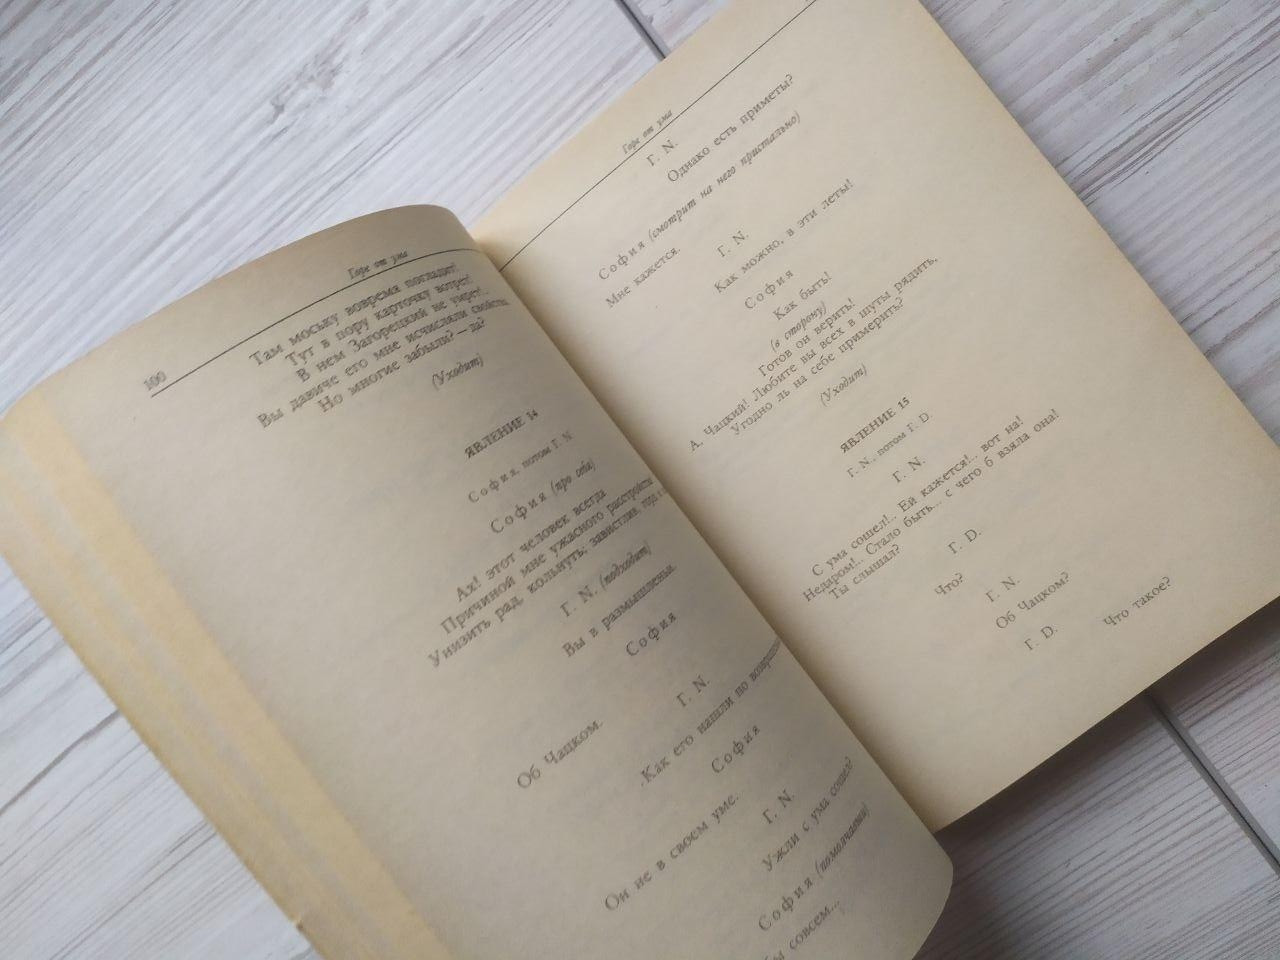 100
Горе от ума
Там моську вовремя погладит!
Тут в пору карточку вотрет!
В нем Загорецкий не умрет!..
Вы давиче его мне исчисляли свойства,
Но многие забыли? — да?
(Уходит)
ЯВЛЕНИЕ 14
София, потом Г. N.
София (про себя)
Ах! этот человек всегда
Причиной мне ужасного расстройств
Унизить рад, кольнуть; завистлив, горд
Г. N. (подходит)
Вы в размышлены.
София
Об Чацком.
Г. N.
Как его нашли по возвращен
София
Он не в своем уме.
Г. N.
Ужли с ума сошел?
София (помолчавши)
совсем...
Горе от ума
Г. N.
Однако есть приметы?
София (смотрит на него пристально)
Мне кажется.
Г. N.
Как можно, в эти леты!
София
Как быть!
(в сторону)
Готов он верить!
А, Чацкий! Любите вы всех в шуты рядить,
Угодно ль на себе примерить?
(Уходит)
ЯВЛЕНИЕ 15
Г. N., потом Г. D.
Г. N.
С ума сошел!.. Ей кажется!.. вот на!
Недаром!.. Стало быть... с чего б взяла она!
Ты слышал?
Г. D.
Что?
Г. N.
Об Чацком?
Г. D.
Что такое?